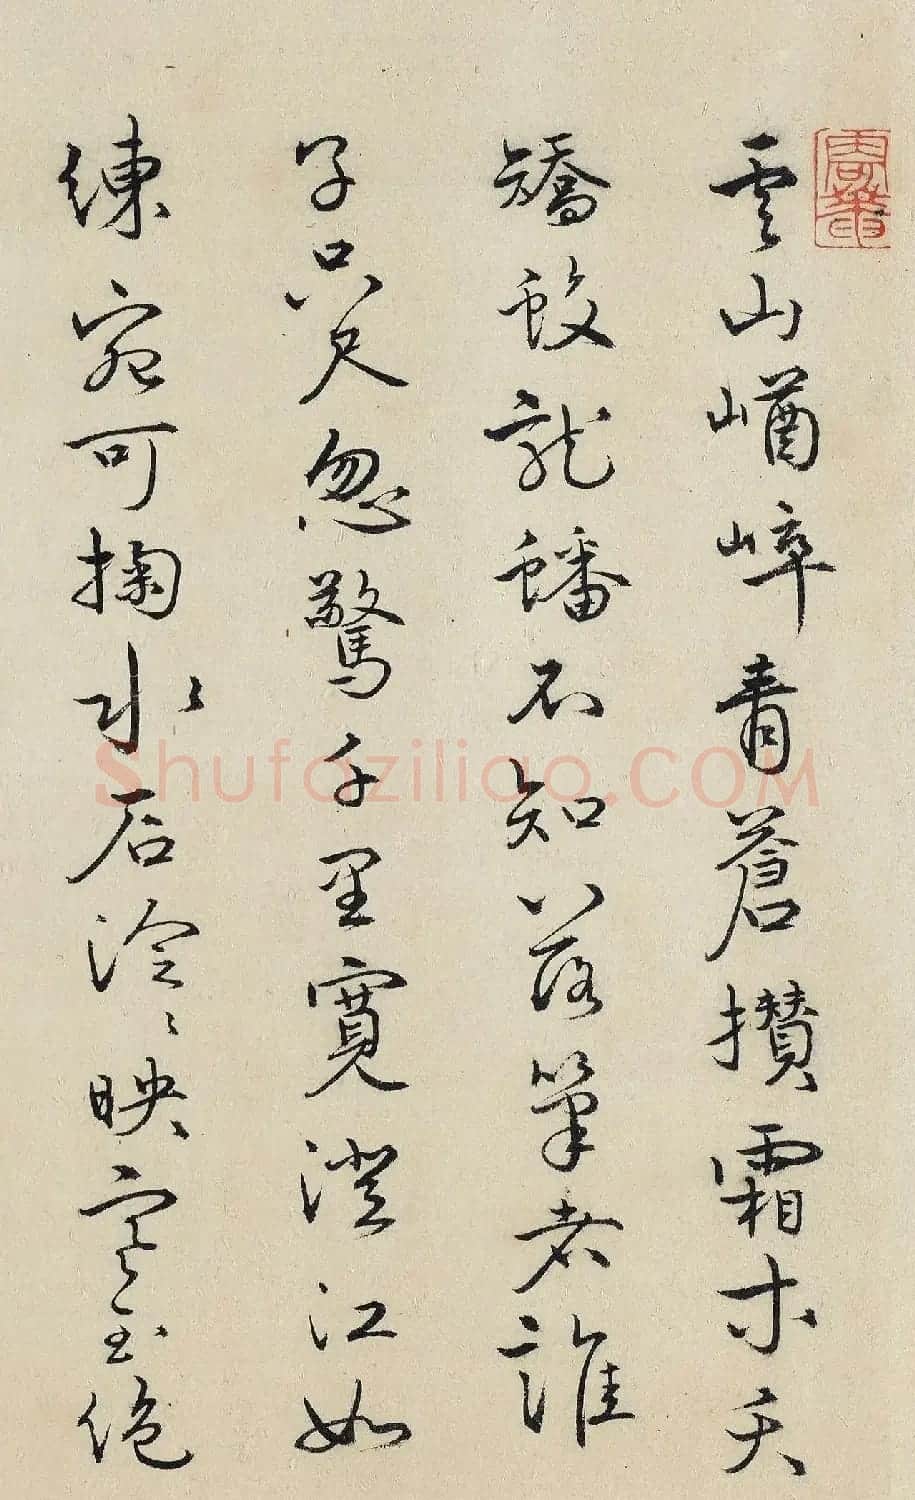 雲山崷崒青蒼攢霜木夭
矯蛟龍蟠不知落筆者誰
子只尺忽驚千里寬澄江如
練宛可掬水石泠泠映寒玉絶
Shufaziliao.COM